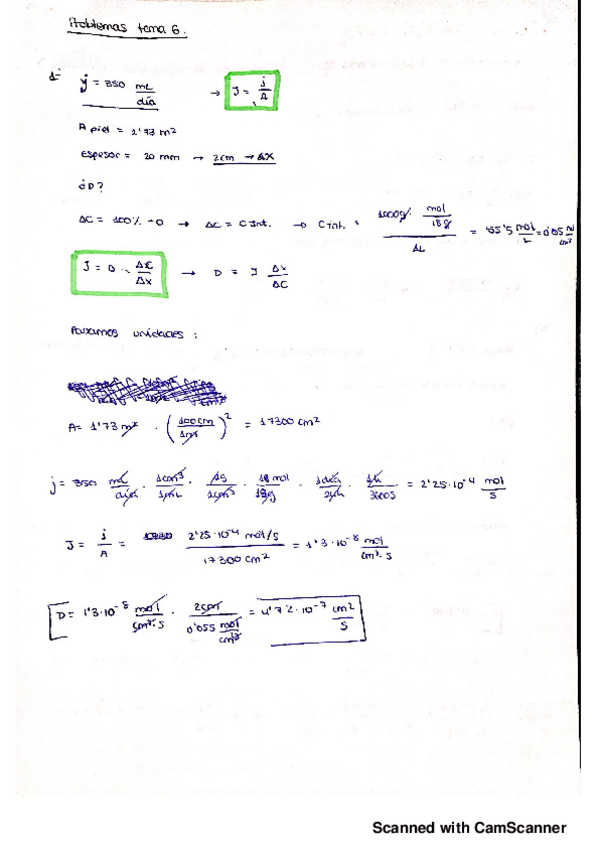 Problemas tema 6.
1- j = 350 mL/día → J = j/A
A piel = 1'73 m²
espesor = 20 mm → 2cm → ΔX
¿D?
ΔC = 100% - 0 → ΔC = C int. → C int. = 1000g · mol/18g / 1L = 55'5 mol/L = 0'055 mol/cm³
J = D · ΔC/Δx → D = J Δx/ΔC
Pasamos unidades :
A = 1'73 m² · (100cm/1m)² = 17300 cm²
j = 350 mL/día · 1cm³/1mL · 1g/1cm³ · 1 mol/18g · 1día/24h · 1h/3600s = 2'25·10⁻⁴ mol/s
J = j/A = 2'25·10⁻⁴ mol/s / 17300 cm² = 1'3·10⁻⁸ mol/cm²·s
D = 1'3·10⁻⁸ mol/cm²·s · 2cm / 0'055 mol/cm³ = 4'72·10⁻⁷ cm²/s
Scanned with CamScanner